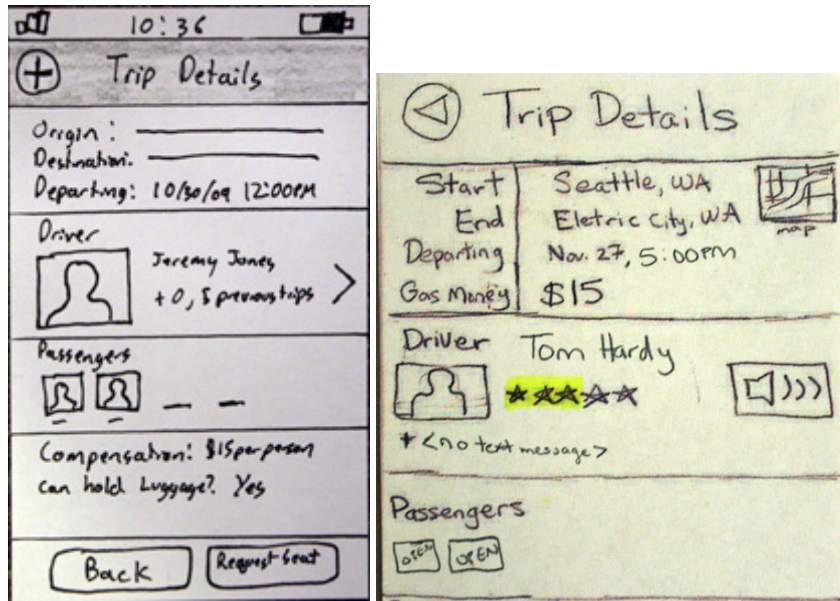 10:36
Trip Details
Origin:
Destination:
Departing: 10/30/09 12:00PM
Driver
Jeremy Jones
+0, 5 previous trips
Passengers
Compensation: $15 per person
Can hold Luggage? Yes
Back
Request Seat
Trip Details
Start Seattle, WA
End Eletric City, WA
map
Departing Nov. 27, 5:00pm
Gas Money $15
Driver Tom Hardy
+ <no text message>
Passengers
OPEN OPEN